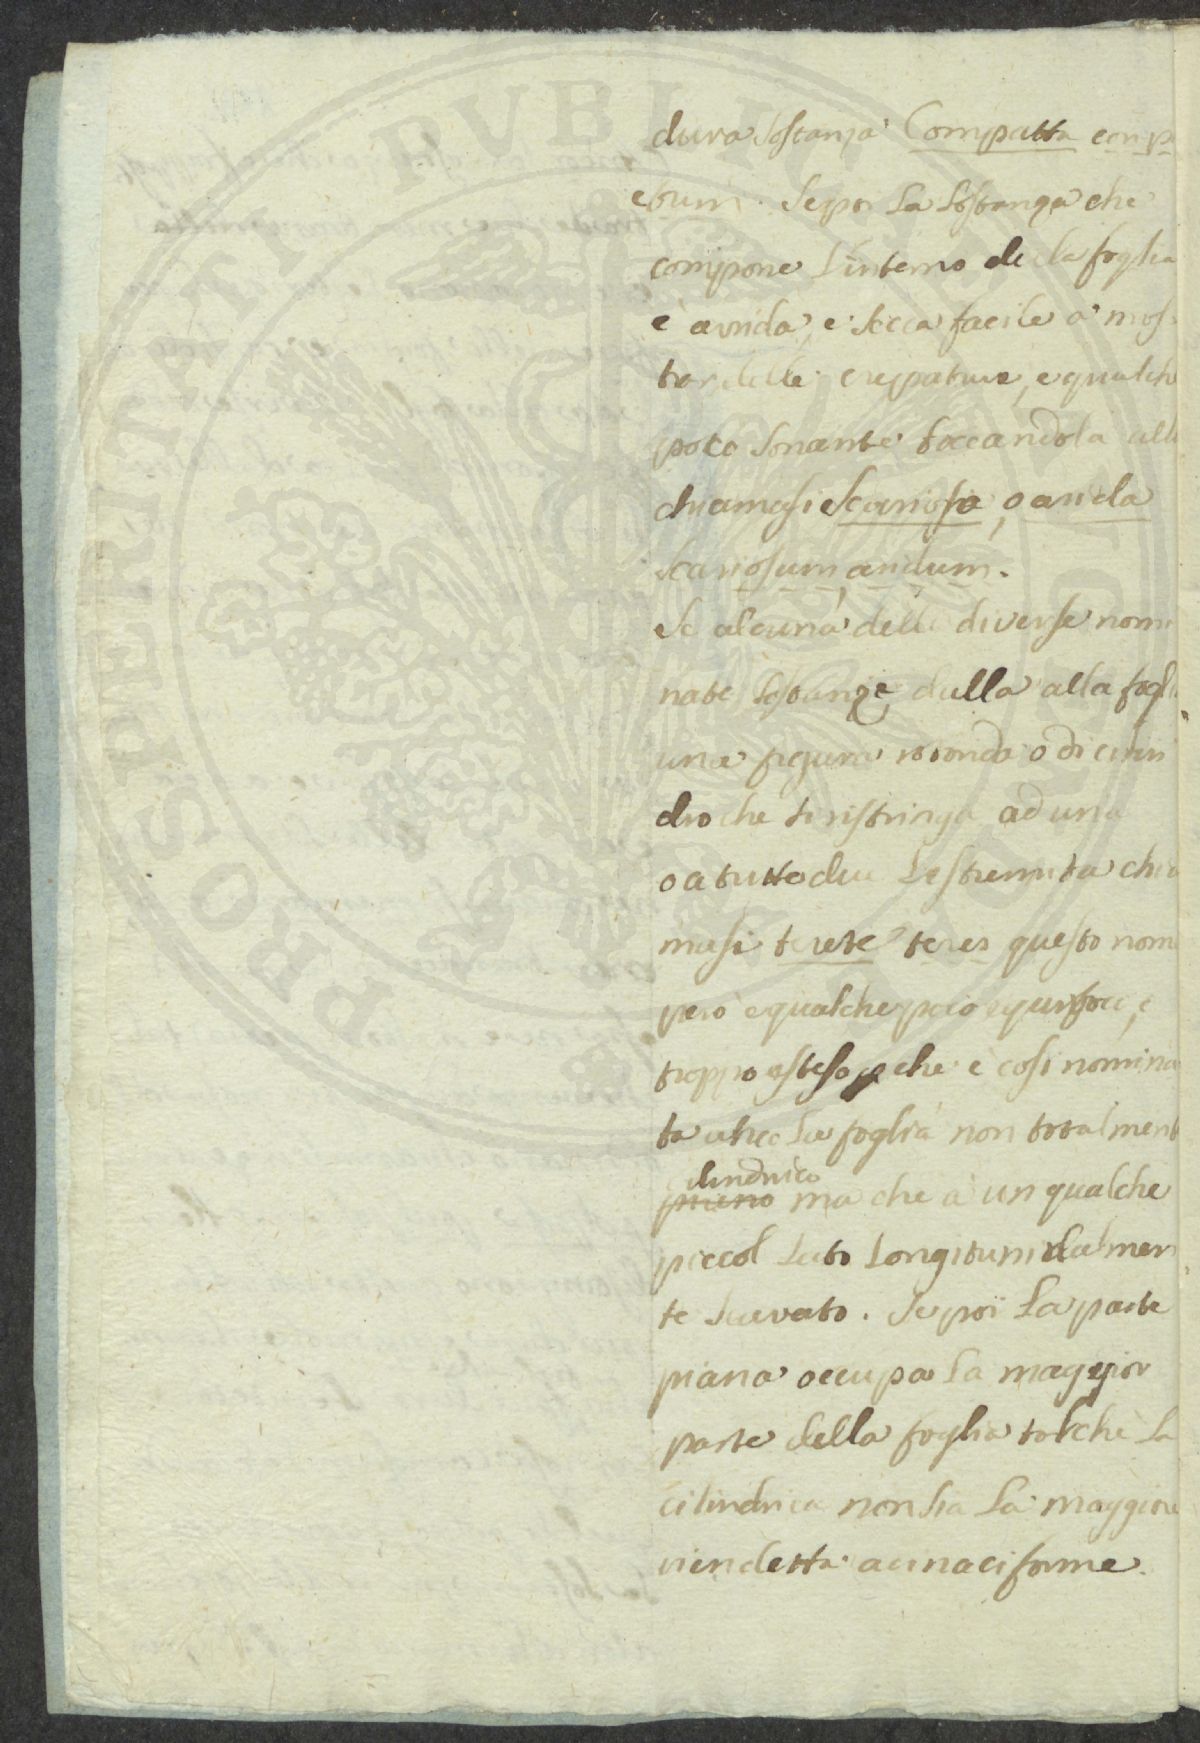 dura sostanza Compatta comp
ctum. Se poi la sostanza che
compone l'interno della foglia
è arrida, e secca facile a mos
trar delle crepature, e qualche
poco sonante toccandola all
chiamasi scariosa, o arida
scariosum, aridum.
Se alcuna delle diverse nomi
nate sostanze dalla alla fogli
una figura rotonda o di cilin
dro che si ristringa ad una
o a tutte due l'estremita chia
masi terete teres questo nom
però è qualche poco equivoco, e
troppo esteso pche è cosi nomina
ta anco la foglia non totalment
cilindrico
piano ma che a un qualche
piccol lato longitunidalmen
te scavato. Se poi la parte
piana occupa la maggior
parte della foglia talchè la
cilindrica non sia la maggiore
vien detta acinaciforme.
PROSPERITATI PVBLICAE